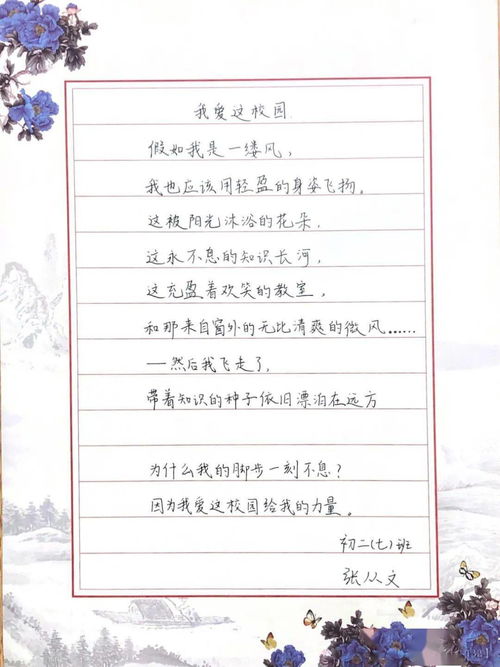 我爱这校园
假如我是一缕风，
我也应该用轻盈的身姿飞扬。
这被阳光沐浴的花朵，
这永不息的知识长河，
这充盈着欢笑的教室，
和那来自窗外的无比清爽的微风……
—然后我飞走了，
带着知识的种子依旧漂泊在远方
为什么我的脚步一刻不息？
因为我爱这校园给我的力量。
初二(七)班
张从文